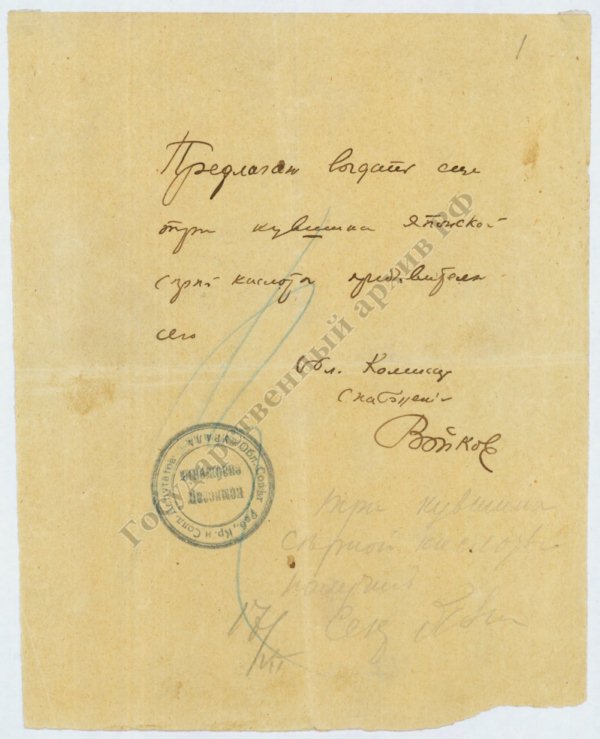 1
Предлагаю выдать еще
три кувшина Японской
серной кислоты предъявителю
сего
Обл. Комиссар
Снабжения
Войков
Обл. Совет Раб., Кр. и Солд. Депутатов УРАЛА
комиссар
снабжения
три кувшина
серной кислоты
получил
17/VII
Государственный архив РФ